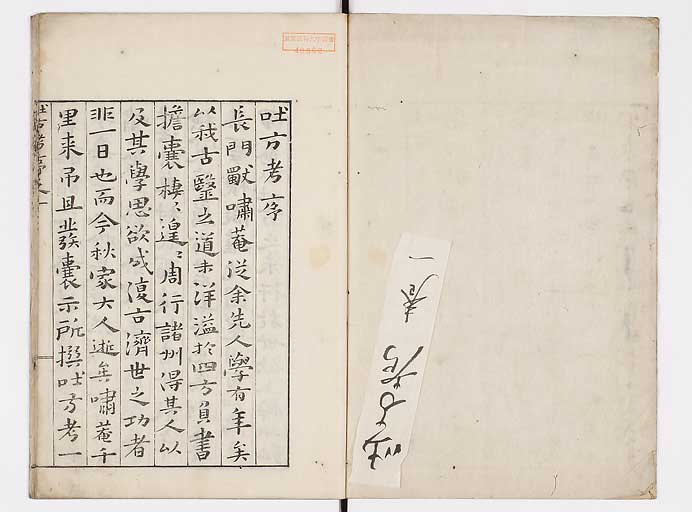 吐方考序
長門獸嘯菴従余先人學有年矣
以我古毉之道未洋溢於四方負書
擔囊棲〻遑〻周行諸州得其人以
及其學思欲成復古濟世之功者
非一日也而今秋家大人逝矣嘯菴千
里来吊且發囊示所撰吐方考一
吐方考 壱